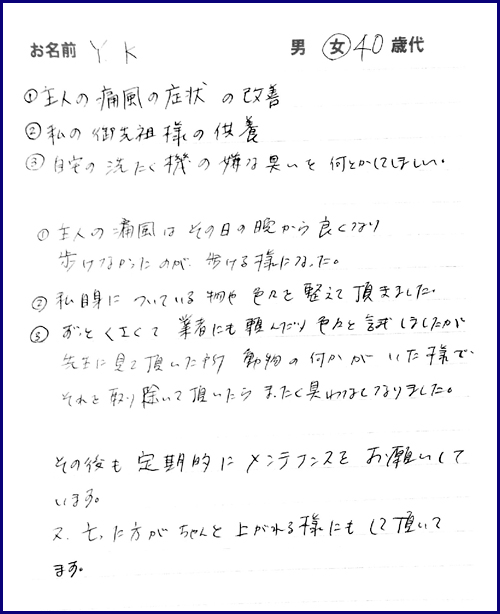 お名前 Y K 男 女 40 歳代
①主人の痛風の症状の改善
②私の御先祖様の供養
③自宅の洗たく機の嫌な臭いを何とかしてほしい。
①主人の痛風はその日の晩から良くなり
歩けなかったのが、歩ける様になった。
②私自身についている物や色々と整えて頂きました。
③ずっとくさくて業者にも頼んだり色々と試しましたが
先生に見て頂いた所動物の何かがいた様で、
それを取り除いて頂いたらまったく臭わなくなりました。
その後も定期的にメンテナンスをお願いして
います。
又、亡った方がちゃんと上がれる様にもして頂いて
ます。